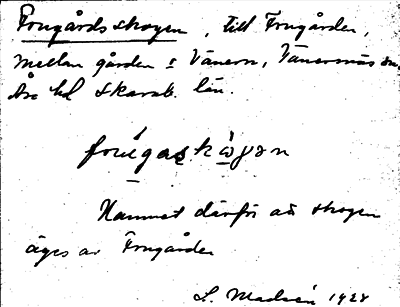 Frugårdsskogen, till Frugården,
mellan gården o Vänern, Vänersnäs sn,
Åse hd Skarab. län.
Namnet därför att skogen
äges av Frugården
L. Modin 1928